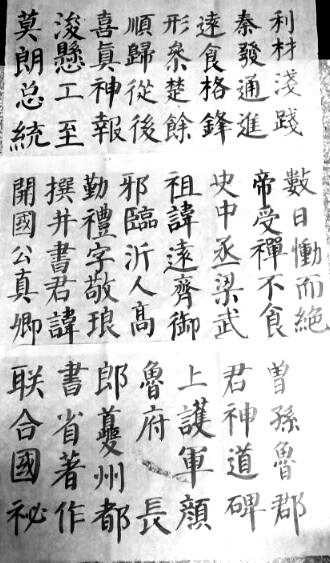 利材淺踐
秦發通進
達食格鋒
形叅楚餘
順歸從後
喜眞神報
浚懸工至
莫朗总統
數日慟而絕
帝受禪不食
史中丞梁武
祖諱遠齊御
邪臨沂人高
勤禮字敬琅
撰并書君諱
開國公真卿
曾孫魯郡
君神道碑
上護軍顏
魯府長
郎夔州都
書省著作
联合國祕